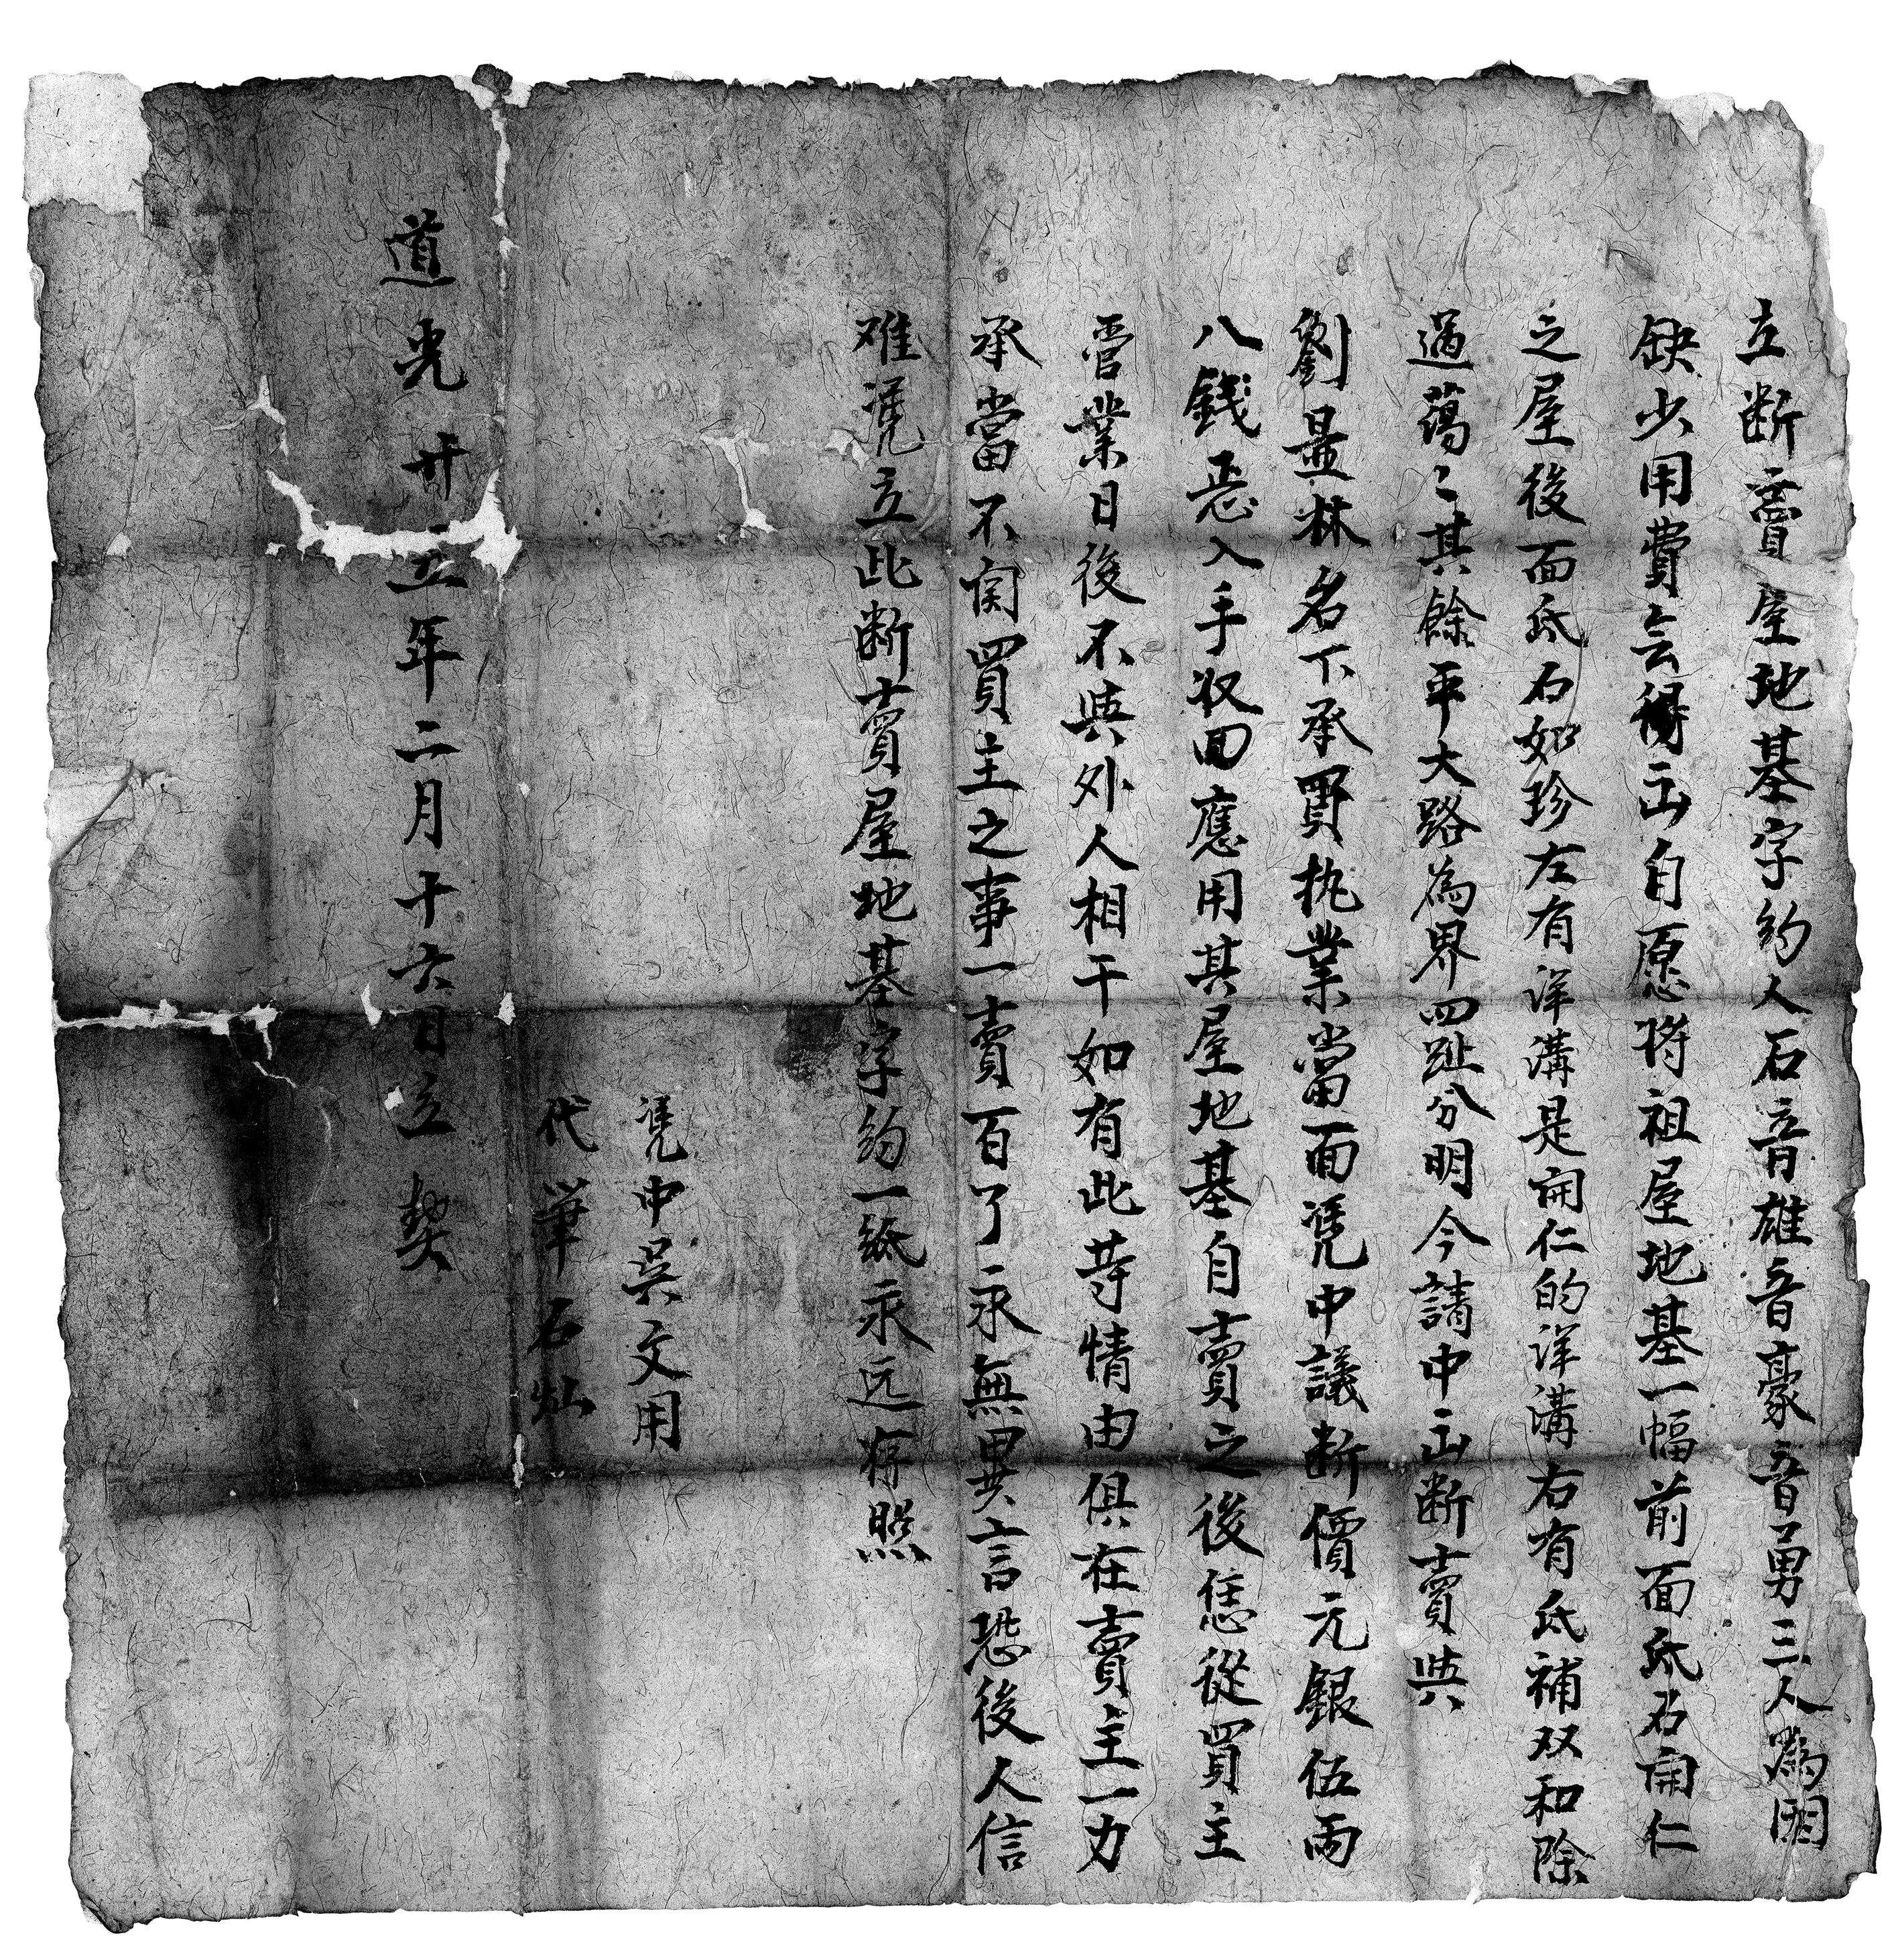 立断賣屋地基字約人石音雄音豪音勇三人為因
缺少用費無得出自愿将祖屋地基一幅前面底石開仁
之屋後面底石如珍左有洋溝是開仁的洋溝右有底補双和除
過蕩〻其餘平大路為界四趾分明今請中出断賣與
劉量林名下承買执業當面凭中議断價元銀伍両
八錢悬入手收回應用其屋地基自賣之後恁從買主
管業日後不與外人相干如有此等情由俱在賣主一力
承當不関買主之事一賣百了永無異言恐後人信
难凭立此断賣屋地基字約一紙永远存照
凭中吳文用
代筆石灿
道光廿五年二月十六日立契